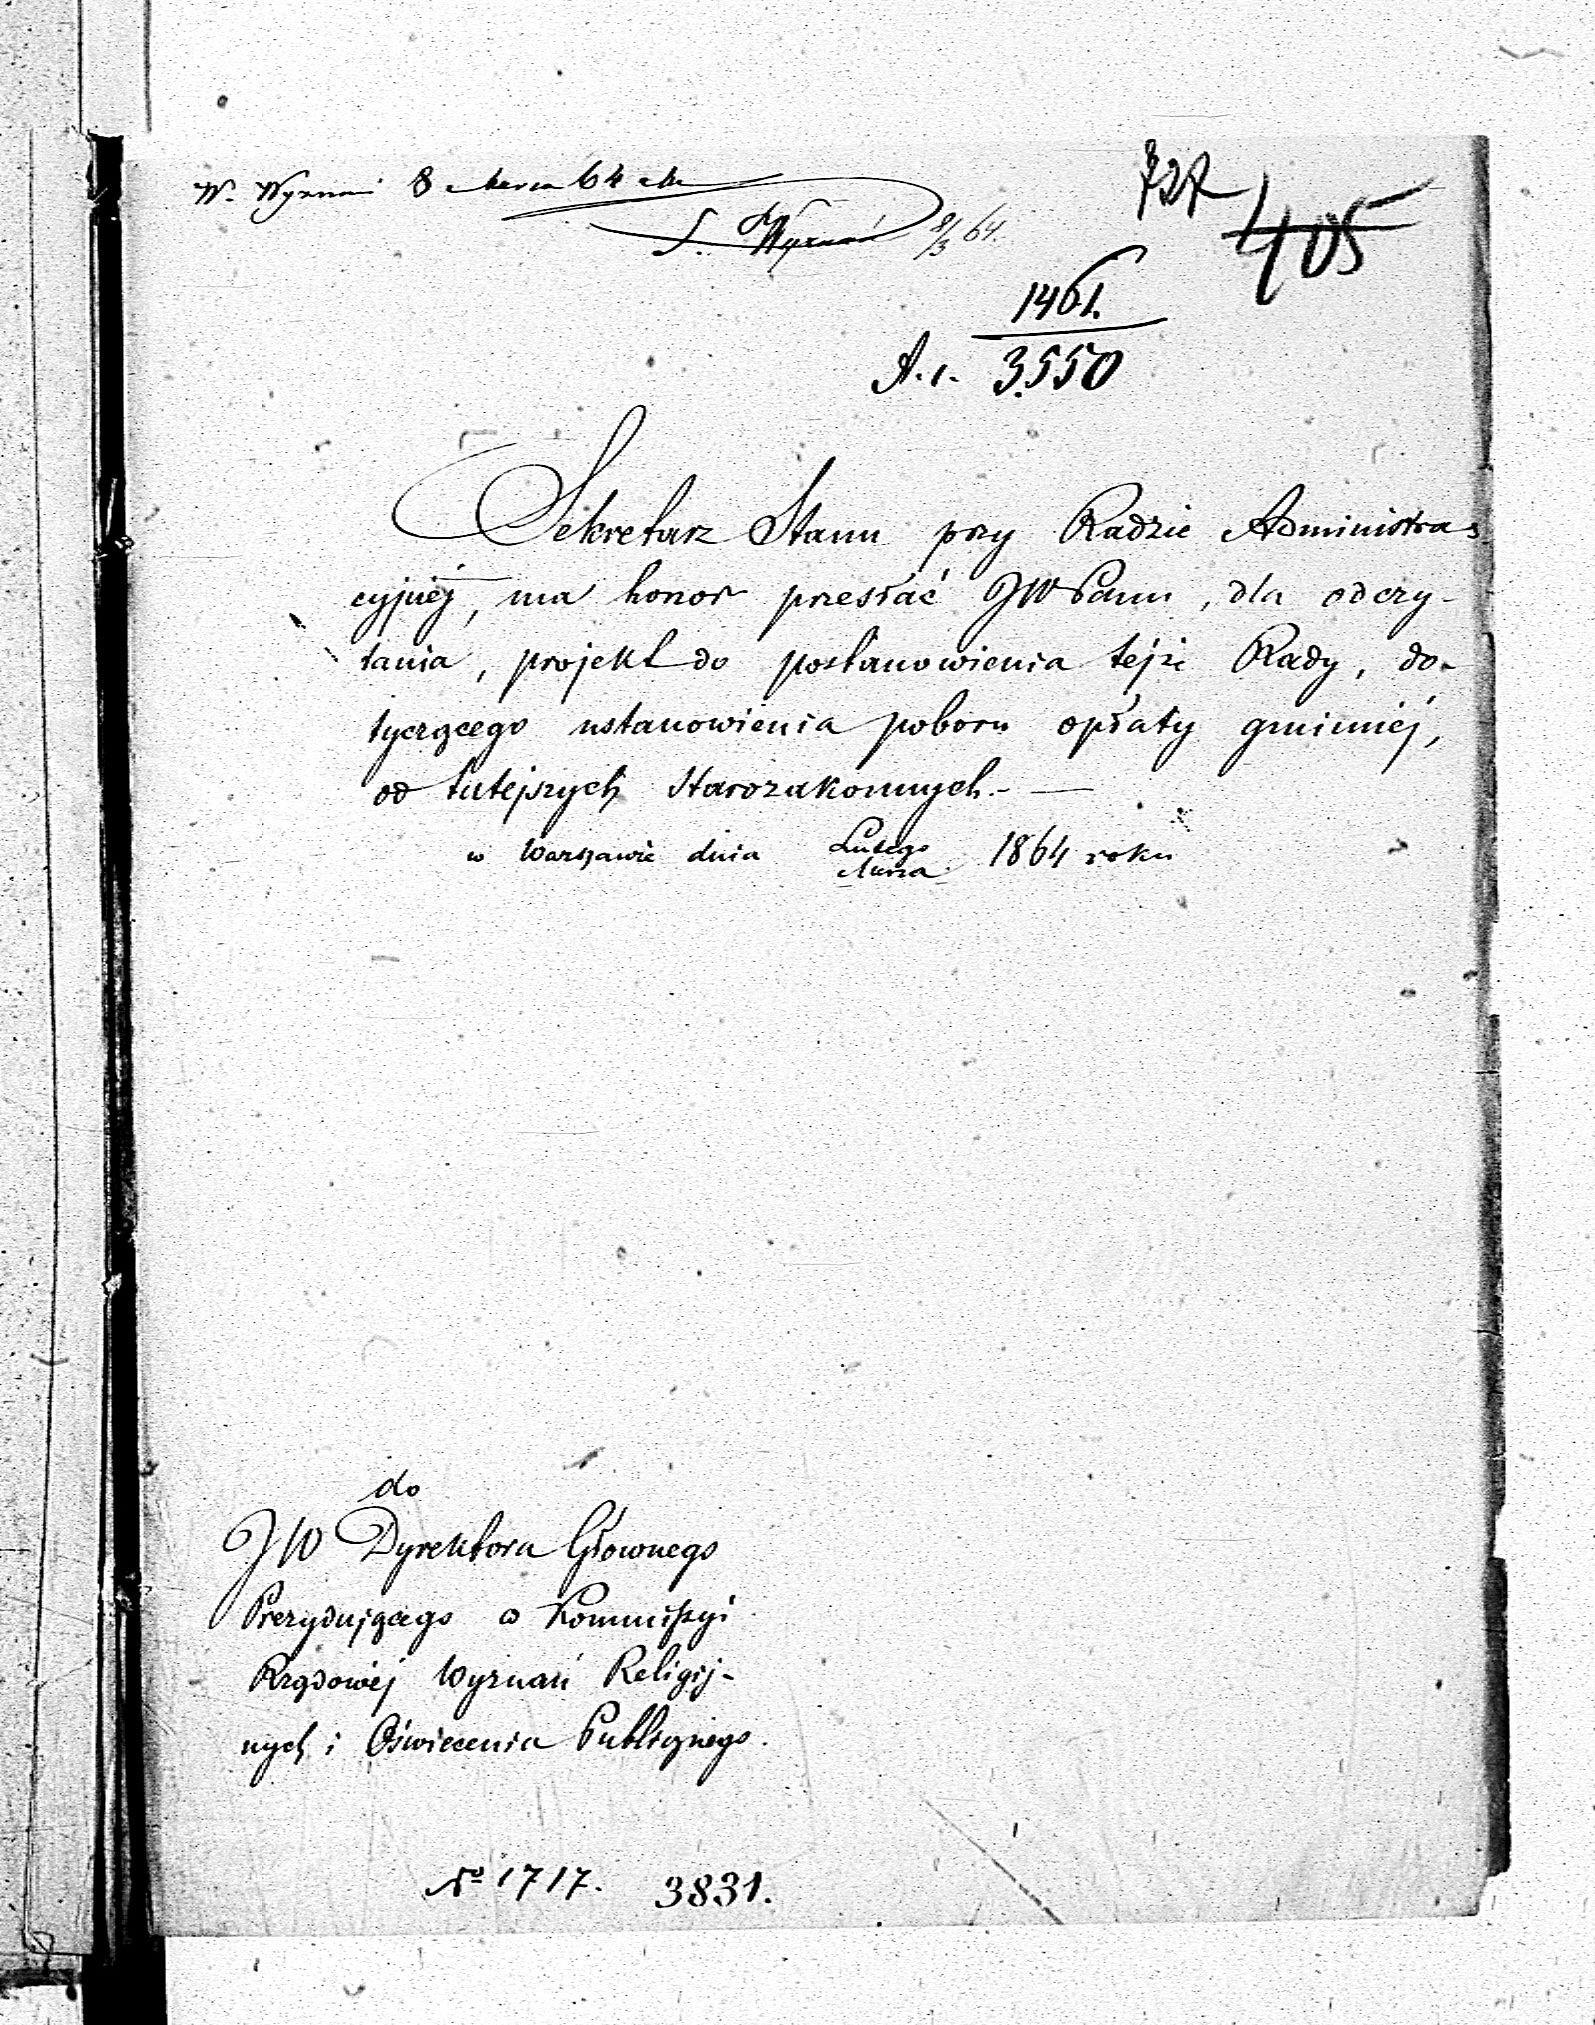 W. Wyznań 8 Marca 64
S. Wyznań 8/3 64.
727
405
1461.
A. 1. 3.550
Sekretarz Stanu przy Radzie Administra-
cyjnéj, ma honor przesłać JWPanu, dla odczy-
tania, projekt do postanowienia tejże Rady, do-
tyczącego ustanowienia poboru opłaty gminnéj,
od tutejszych Starozakonnych.-
w Warszawie dnia Lutego
Marca 1864 roku
do
JW Dyrektora Głownego
Prezydującego w Kommissyi
Rządowéj Wyznań Religij-
nych i Oświecenia Publicznego.
No 1717. 3831.